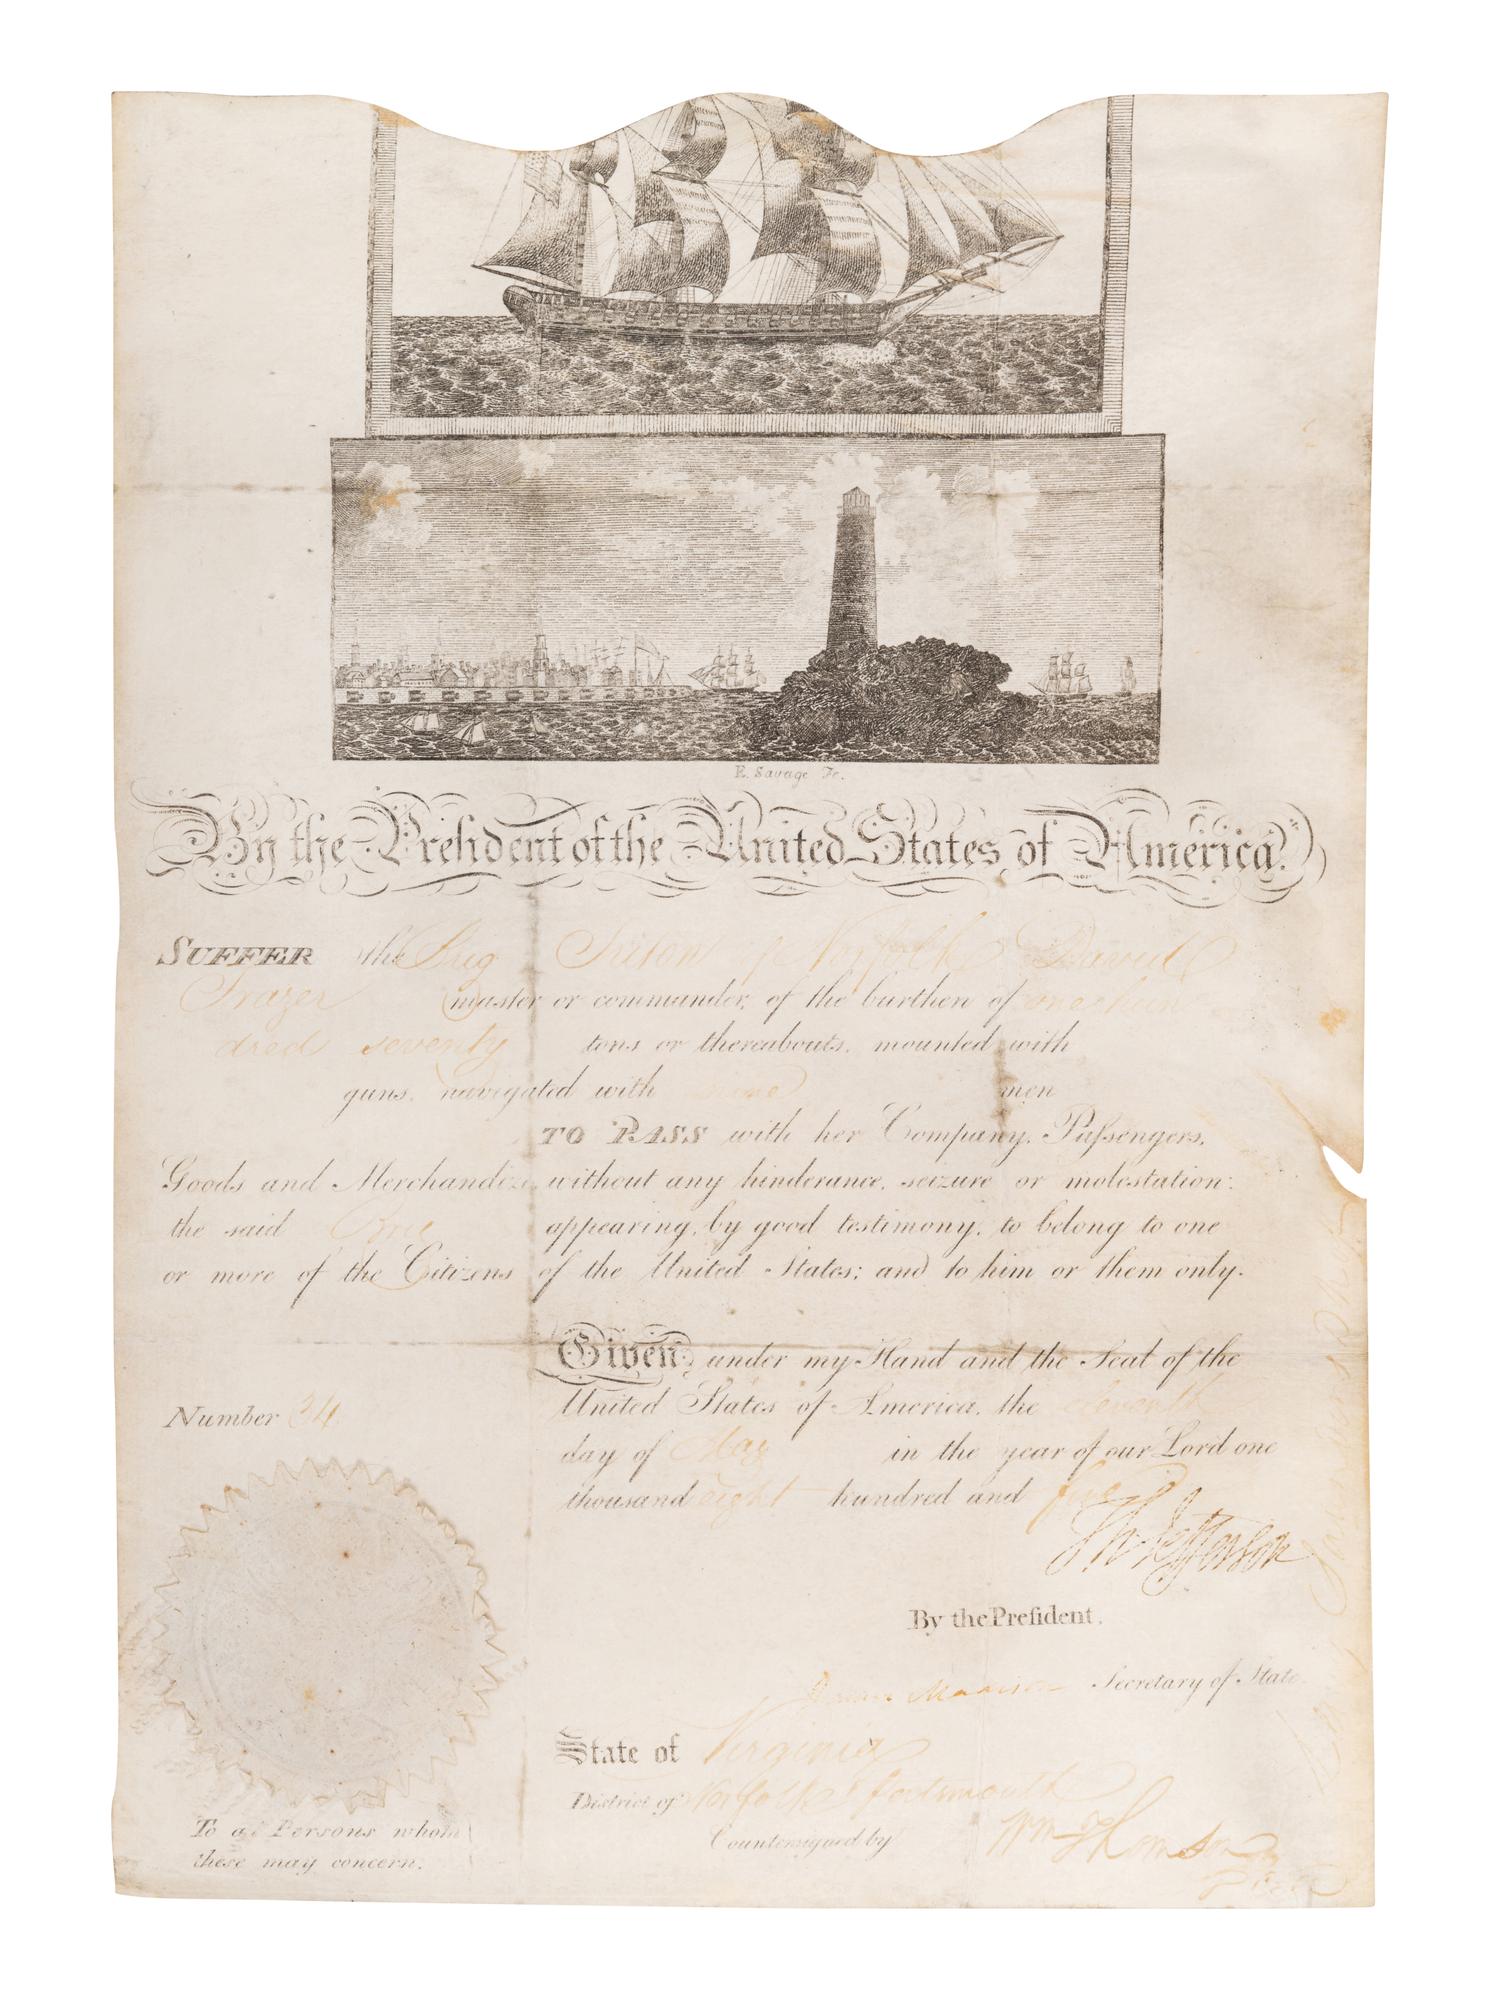 E. Savage Fc.
By the President of the United States of America.
SUFFER the Brig Triton of Norfolk David
Frazer master or commander, of the burthen of one hun
dred seventy tons or thereabouts, mounted with
guns, navigated with nine men
TO PASS with her Company, Paſsengers,
Goods and Merchandize without any hinderance, seizure or molestation:
the said Brig appearing, by good testimony, to belong to one
or more of the Citizens of the United States; and to him or them only.
Given under my Hand and the Seal of the
United States of America, the
day of May in the year of our Lord one
thousand eight hundred and five
Number 34.
Th: Jefferson
By the Preſident.
James Madison Secretary of State.
State of Virginia
District of Norfolk & Portsmouth
Countersigned by Wm Thomson
To all Persons whom
these may concern.